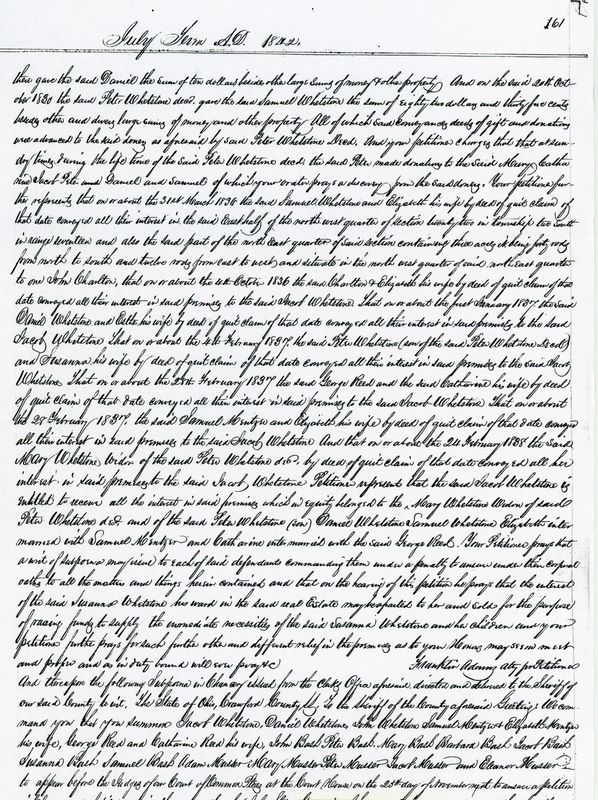 161
July Term A.D. 1842.
there gave the said Daniel the sum of ten dollars besides other large sums of money & other property And on the said 20th Oct-
ober 1830 the said Peter Whetstone decd. gave the said Samuel Whetstone the sum of eighty two dollars and thirty five cents
besides other and divers large sums of money and other property All of which said conveyances deeds of gift and donations
were advanced to the said donees as aforesaid by said Peter Whetstone Decd. And your petitioner charges that that at sun-
dry times during the life time of the said Peter Whetstone decd. the said Peter made donations to the said Mary Catha-
rine Jacob Peter and Daniel and Samuel of which your orator prays a discovery from the said donees. Your petitioner fur-
ther represents that on or about the 31st March 1836 the said Samuel Whetstone and Elizabeth his wife by deed of quit claim of
that date conveyed all their interest in the said East half of the north west quarter of section twenty two in township two South
in range seventeen and also the said part of the north East quarter of said section containing three acres & being forty rods
from north to south and twelve rods from east to west and situate in the north west quarter of said north east quarter
to one John Charlton, that on or about the 4th October 1836 the said Charlton & Elizabeth his wife by deed of quit claim of that
date conveyed all their interest in said premises to the said Jacob Whetstone. That on or about the first January 1837 the said
Daniel Whetstone and Esther his wife by deed of quit claim of that date conveyed all their interest in said premises to the said
Jacob Whetstone That on or about the 4th February 1837 the said Peter Whetstone (son of the said Peter Whetstone Decd)
and Susanna his wife by deed of quit claim of that date conveyed all their interest in said premises to the said Jacob
Whetstone. That on or about the 28th February 1837 the said George Reed and the said Catharine his wife by deed
of quit claim of that date conveyed all their interest in said premises to the said Jacob Whetstone That on or about
the 28 February 1837. the said Samuel Mentzer and Elizabeth his wife by deed of quit claim of that date conveyed
all their interest in said premises to the said Jacob Whetstone And that on or about the 24 February 1838 the said
Mary Whetstone widow of the said Peter Whetstone decd. by deed of quit claim of that date conveyed all her
interest in said premises to the said Jacob Whetstone Petitioner represents that the said Jacob Whetstone is
entitled to receive all the interest in said premises which in equity belonged to the Mary Whetstone Widow of said
Peter Whetstone decd and of the said Peter Whetstone (son) Daniel Whetstone Samuel Whetstone Elizabeth inter
married with Samuel Mentzer and Catharine inter married with the said George Reed. Your Petitioner prays that
a writ of subpoena may issue to each of said defendants commanding them under a penalty to answer under their corporal
oaths to all the matters and things herein contained and that on the hearing of this petition he prays that the interest
of the said Susanna Whetstone his ward in the said real Estate may be aparted to her and sold for the purpose
of raising funds to supply the immediate necessities of the said Susanna Whetstone and her children and your
petitioner further prays for such further other and different relief in the premises as to your Honors may seem meet
and proper and as in duty bound will ever pray &c Franklin Adams atty for Petitioner
And thereupon the following Subpoena in Chancery issued from the Clerks Office aforesaid directed and delivered to the Sheriff of
our said County to wit. The State of Ohio, Crawford County SS, To the Sheriff of the County aforesaid Greeting. We com-
mand you that you summon Jacob Whetstone, Daniel Whetstone, John Whetstone Samuel Mentzer & Elizabeth Mentzer
his wife, George Reed and Catharine Reed his wife, John Bash Peter Bash. Mary Bash Barbara Bash Jacob Bash
Susanna Bash Samuel Bash Adam Musser & Mary Musser Peter Musser Jacob Musser and Eleanor Musser
to appear before the Judges of our Court of Common Pleas at the Court House on the 28th day of November next to answer a petition